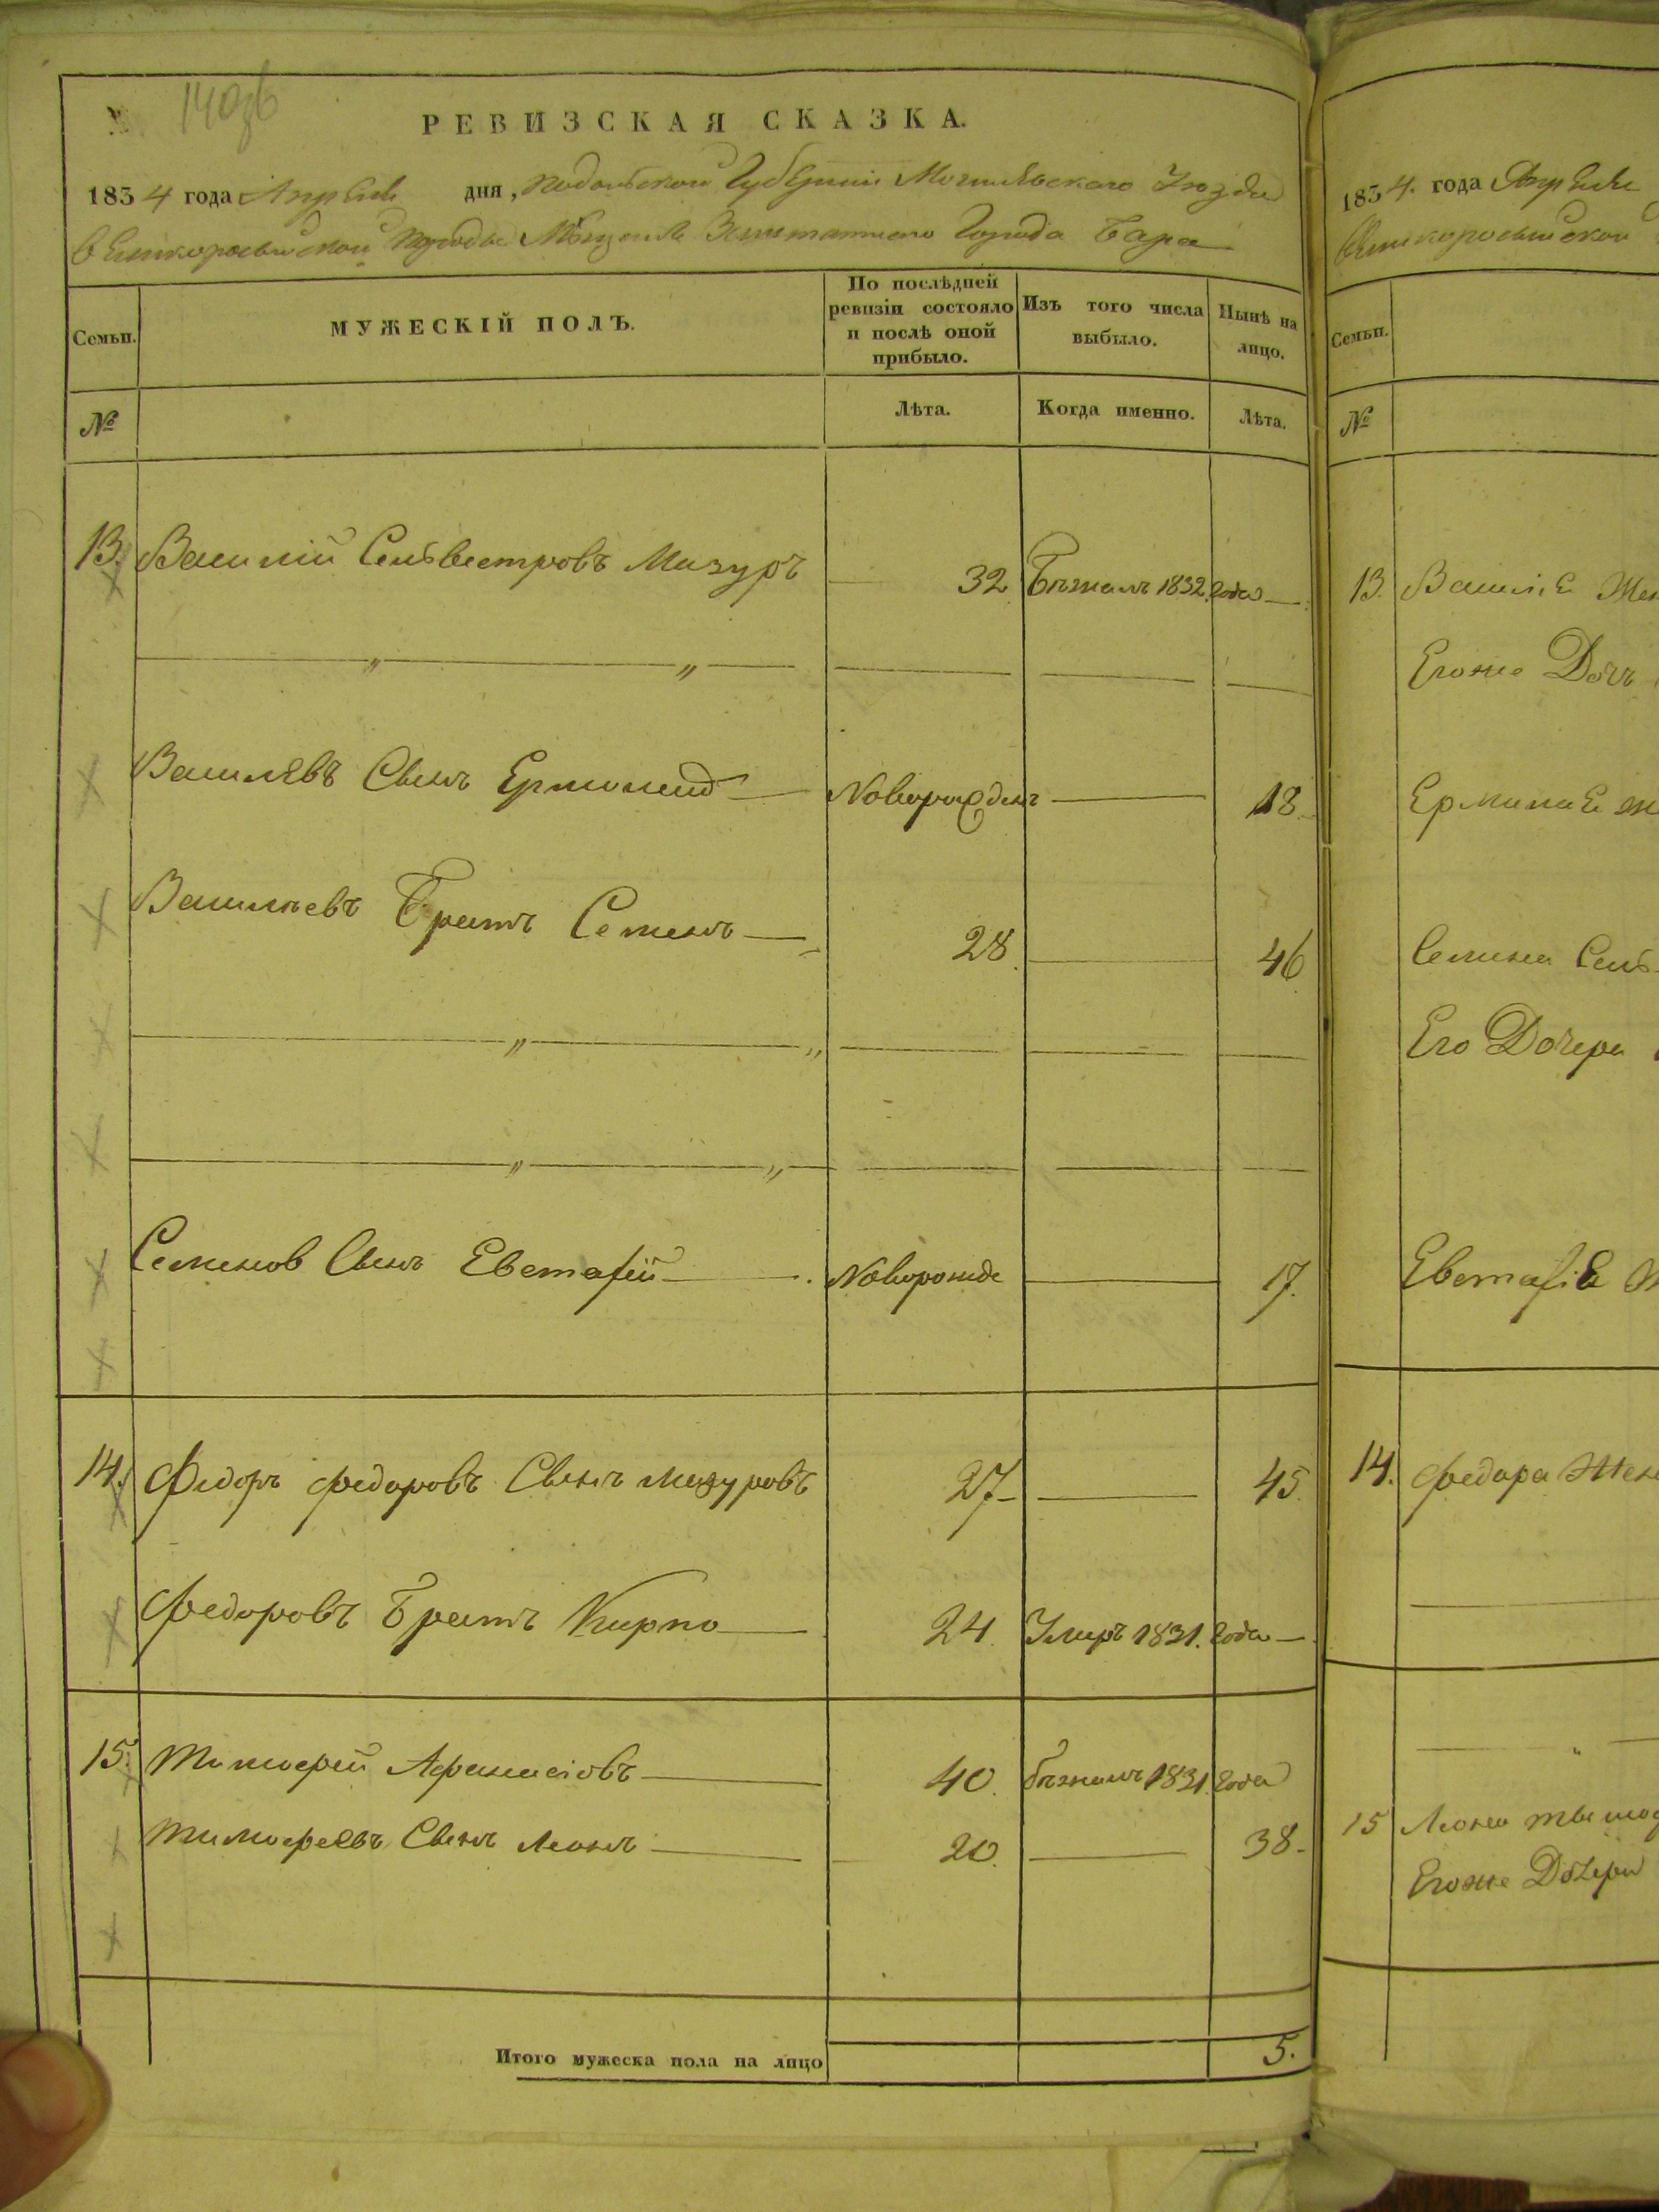 140зв
РЕВИЗСКАЯ СКАЗКА.
1834 года Апреля дня, Подольской Губернии Могилевского Уезда
Великоросийской породы Мещан Заштатного Города Бара
Семьи.
МУЖЕСКІЙ ПОЛЪ.
По послѣдней ревизіи состояло и послѣ оной прибыло.
Изъ того числа выбыло.
Нынѣ на лицо.
№
Лѣта.
Когда именно.
Лѣта.
13. Василий Сельвестровъ Мазуръ 32 Бѣжалъ 1832 года
Василевъ Сынъ Новорожденъ 18
Васильевъ Братъ Семенъ 28 46
Семенов Сынъ Евстафій Новорожде 17.
14. Федоръ Федоровъ Сынъ Мазуровъ 27 45
Федоровъ Братъ Кирпо 24. Умеръ 1831. года
15. Тимофей Афанасіовъ 40. бѣжалъ 1831. года
Тимофеевъ Сынъ Леонъ 20. 38
Итого мужеска пола на лицо 5.
1834. года Апреля
Великоросийской
Семьи.
№
13. Василiя Жен
Егоже Дочъ
Семена Сель
Его Дочери
Евстафiя
14. Федора Жен
15 Леона
Егоже Дочери